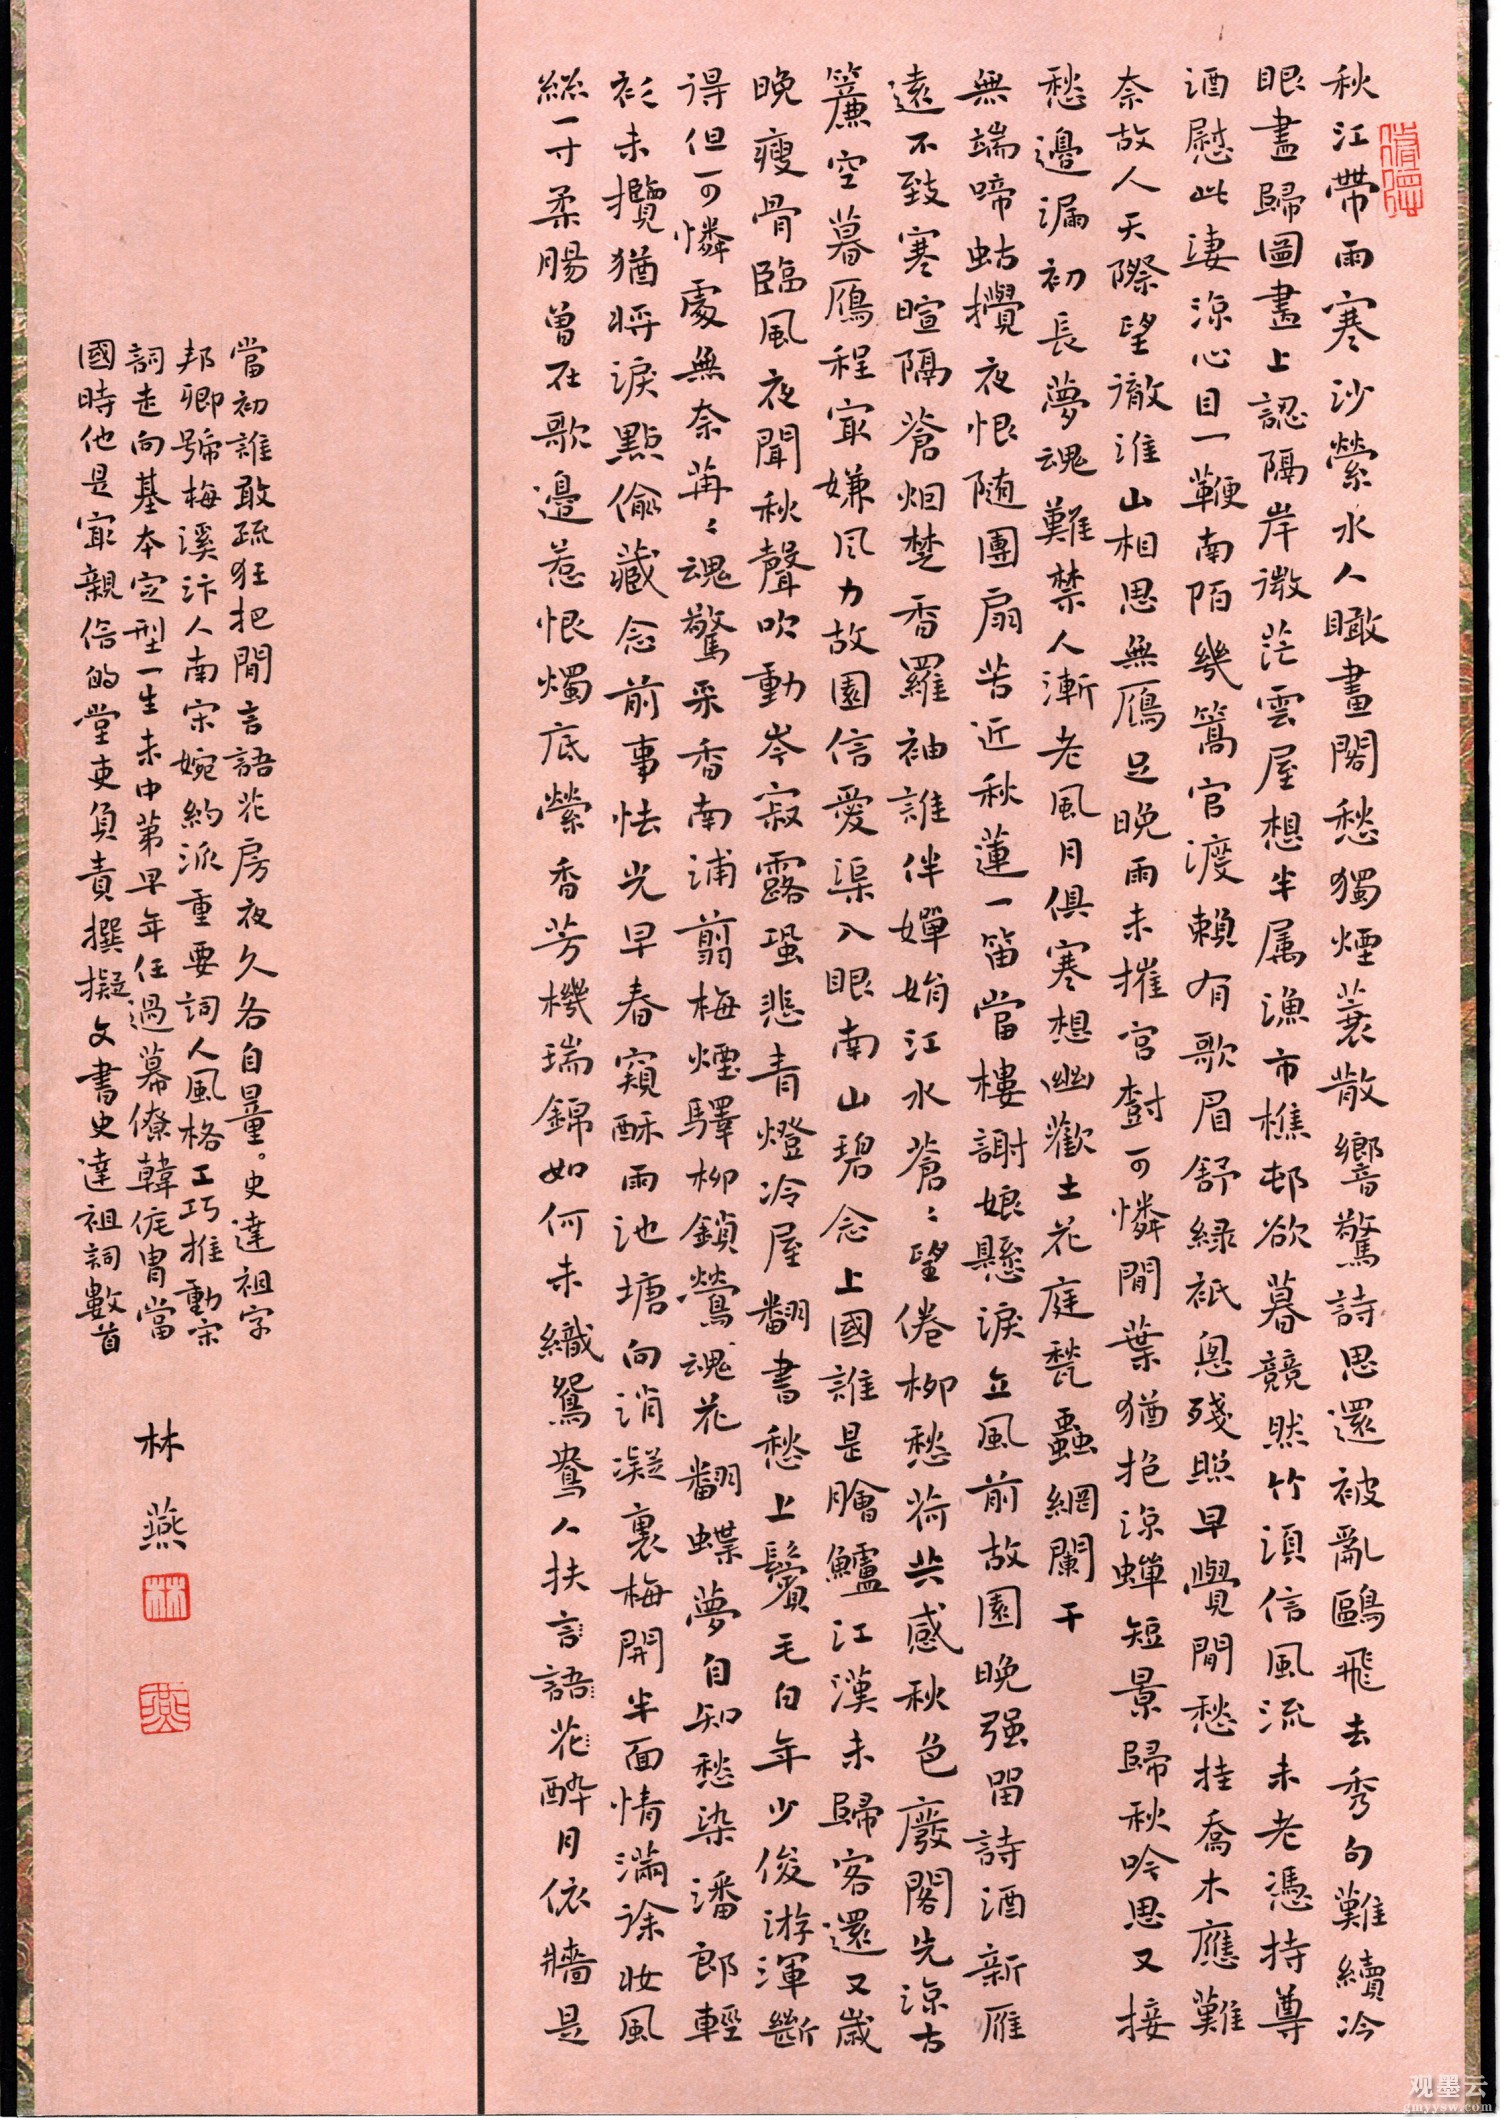 秋江帶雨寒沙縈水人瞰畫閣愁獨煙蓑散響驚詩思還被亂鷗飛去秀句難續冷
眼盡歸圖畫上認隔岸微茫雲屋想半属漁市樵邨欲暮競然竹湏信風流未老憑持尊
酒慰此淒涼心目一鞭南陌幾篙官渡賴有歌眉舒綠祇恖殘照早覺閒愁挂喬木應難
奈故人天際望徹淮山相思無鴈足晚雨未摧宫樹可憐閒葉猶抱涼蟬短景歸秋吟思又接
愁邊漏初長夢魂難禁人漸老風月俱寒想幽歡土花庭甃蟲網闌干
無端啼蛄攪夜恨随團扇苦近秋蓮一笛當樓謝娘懸淚立風前故園晚强留詩酒新雁
遠不致寒暄隔蒼烟楚香羅袖誰伴嬋娟江水蒼〻望倦柳愁荷共感秋色廢閣先涼古
簾空暮鴈程㝡嫌风力故園信愛渠入眼南山碧念上國誰是膾鱸江漢未歸客還又歲
晚瘦骨臨風夜聞秋聲吹動岑寂露蛩悲青燈冷屋翻書愁上鬢毛白年少俊游渾斷
得但可憐處無奈苒〻魂驚采香南浦翦梅煙驛柳鎖鶯魂花翻蝶夢自知愁染潘郎輕
衫未攬猶將淚點偷藏念前事怯光早春窺酥雨池塘向消凝裏梅開半面情滿徐妝風
絲一寸柔腸曾在歌邊惹恨燭底縈香芳機瑞錦如何未織鴛鴦人扶言語花醉月依牆是
當初誰敢疏狂把閒言語花房夜久各自思量。史達祖字
邦卿號梅溪汴人南宋婉約派重要詞人風格工巧推動宋
詞走向基本定型一生未中第早年任過幕僚韓侂胄當
國時他是㝡親信的堂吏負責撰擬文書史達祖詞數首
林燕
林
燕
观墨云
gmyysw.com